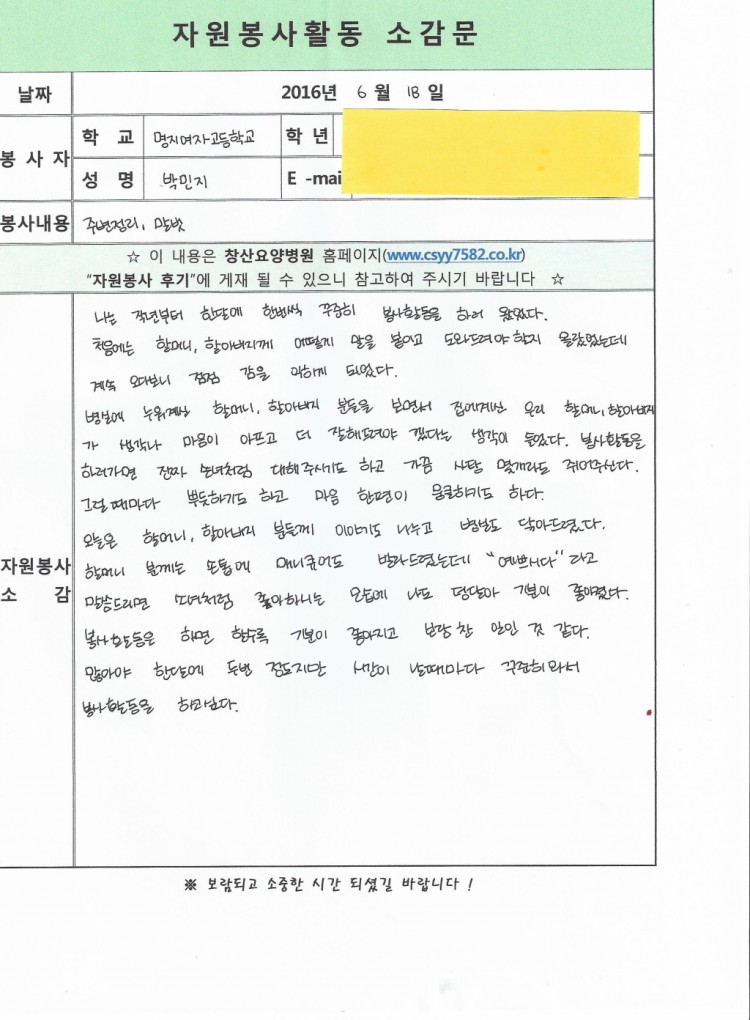 자원봉사활동 소감문
날짜 2016년 6월 18일
봉사자 학교 명지여자고등학교 학년
성명 박민지 E-mai
봉사내용 주변정리, 말벗
☆ 이 내용은 창산요양병원 홈페이지(www.csyy7582.co.kr)
"자원봉사 후기"에 게재 될 수 있으니 참고하여 주시기 바랍니다 ☆
나는 작년부터 한달에 한번씩 꾸준히 봉사활동을 하러 왔었다.
처음에는 할머니, 할아버지께 어떻게 말을 붙이고 도와드려야 할지 몰랐었는데
계속 오다보니 점점 감을 익하게 되었다.
병실에 누워계실 할머니, 할아버지 분들을 보면서 집에계신 우리 할머니, 할아버지
가 생각나 마음이 아프고 더 잘해드려야 겠다는 생각이 들었다. 봉사활동을
하러가면 진짜 손녀처럼 대해주시기도 하고 가끔 사탕 몇개라도 쥐어주신다.
그럴 때마다 뿌듯하기도 하고 마음 한편이 뭉클하기도 하다.
오늘은 할머니, 할아버지 분들께 이야기도 나누고 병실도 닦아드렸다.
할머니 분께는 손톱에 매니큐어도 발라드렸는데 "예쁘시다" 라고
말씀드리면 소녀처럼 좋아하시는 모습에 나도 덩달아 기분이 좋아졌다.
봉사활동은 하면 할수록 기분이 좋아지고 보람 찬 일인 것 같다.
많아야 한달에 두번 정도지만 시간이 날때마다 꾸준히 와서
봉사활동을 하고싶다.
자원봉사
소 감
※ 보람되고 소중한 시간 되셨길 바랍니다 !